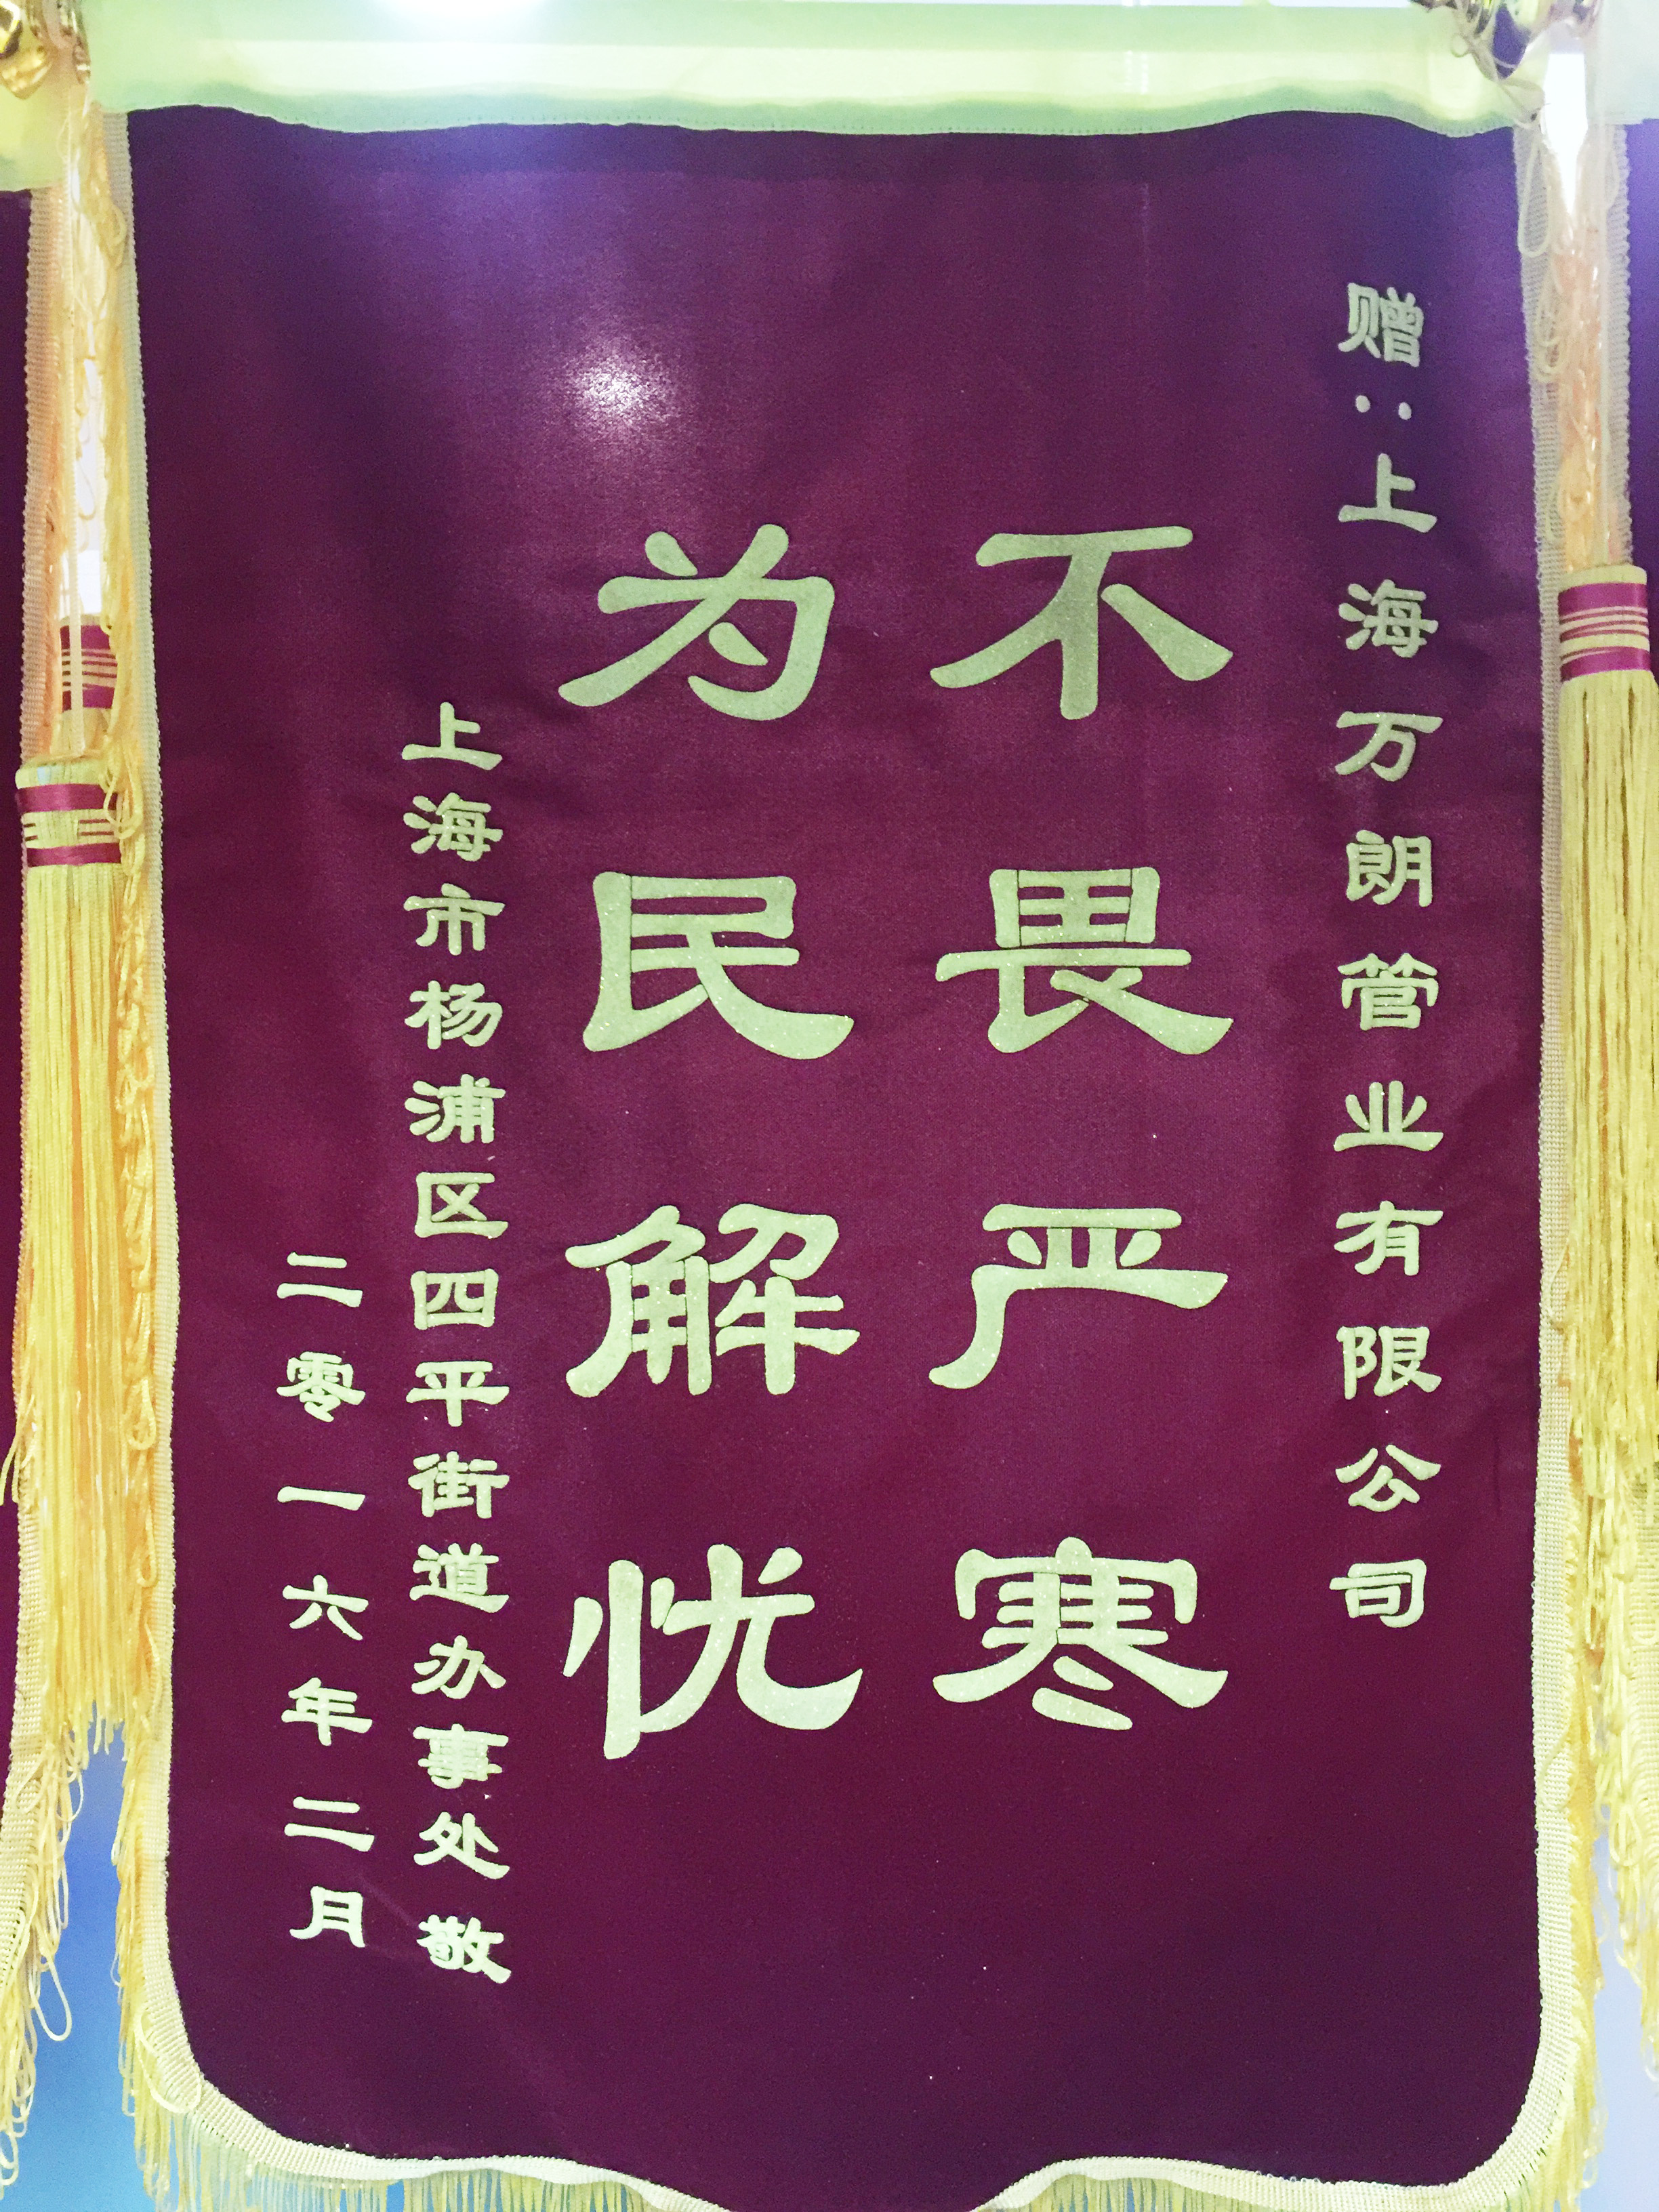 赠：上海万朗管业有限公司
不畏严寒
为民解忧
上海市杨浦区四平街道办事处敬
二零一六年二月